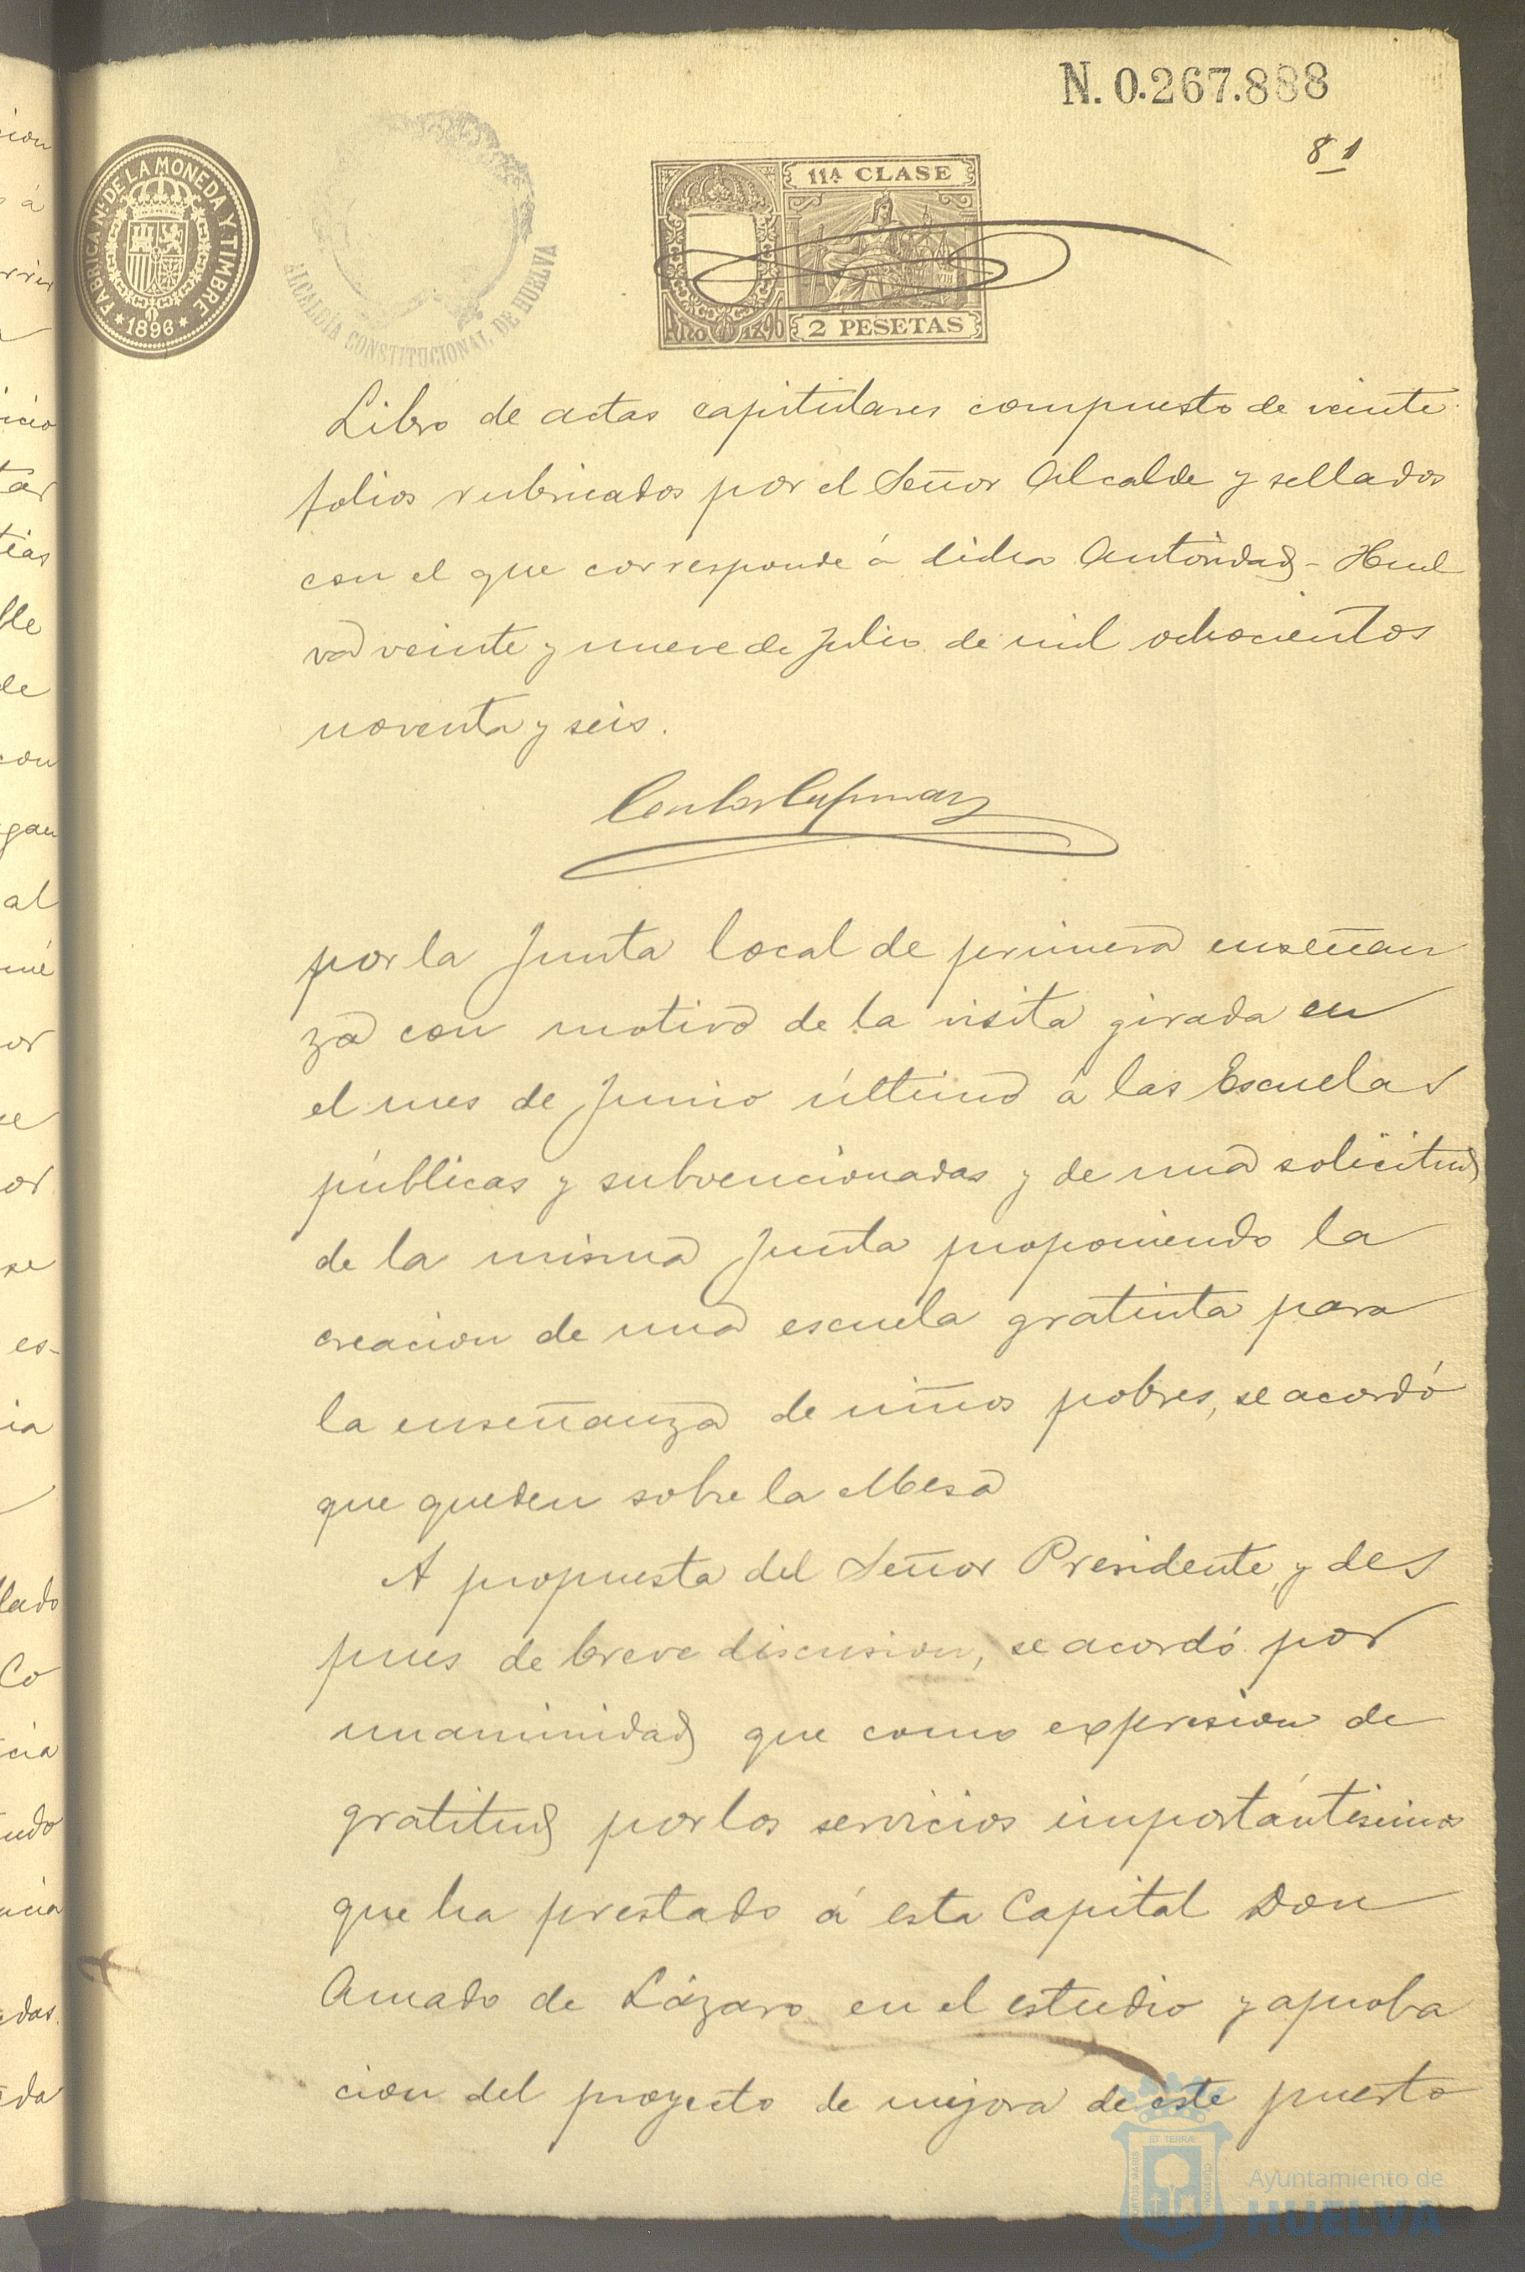 N. 0.267.888
81
FABRICA Nl. DE LA MONEDA Y TIMBRE
* 1896 *
ALCALDÍA CONSTITUCIONAL DE HUELVA
11A CLASE
Año 1896
2 PESETAS
Libro de actas capitulares compuesto de veinte
folios rubricados por el Señor Alcalde y sellados
con el que corresponde á dicha Autoridad - Huel
va veinte y nueve de Julio de mil ochocientos
noventa y seis.
por la Junta local de primera enseñan
za con motivo de la visita girada en
el mes de Junio último á las Escuelas
públicas y subvencionadas y de una solicitud
de la misma Junta proponiendo la
creacion de una escuela gratuita para
la enseñanza de niños pobres, se acordó
que queden sobre la Mesa
A propuesta del Señor Presidente, y des
pues de breve discusion, se acordó por
unanimidad que como expresion de
gratitud por los servicios importántisimos
que ha prestado á esta Capital Don
Amado de Lázaro en el estudio y aproba
cion del proyecto de mejora de este puerto
Ayuntamiento de
HUELVA